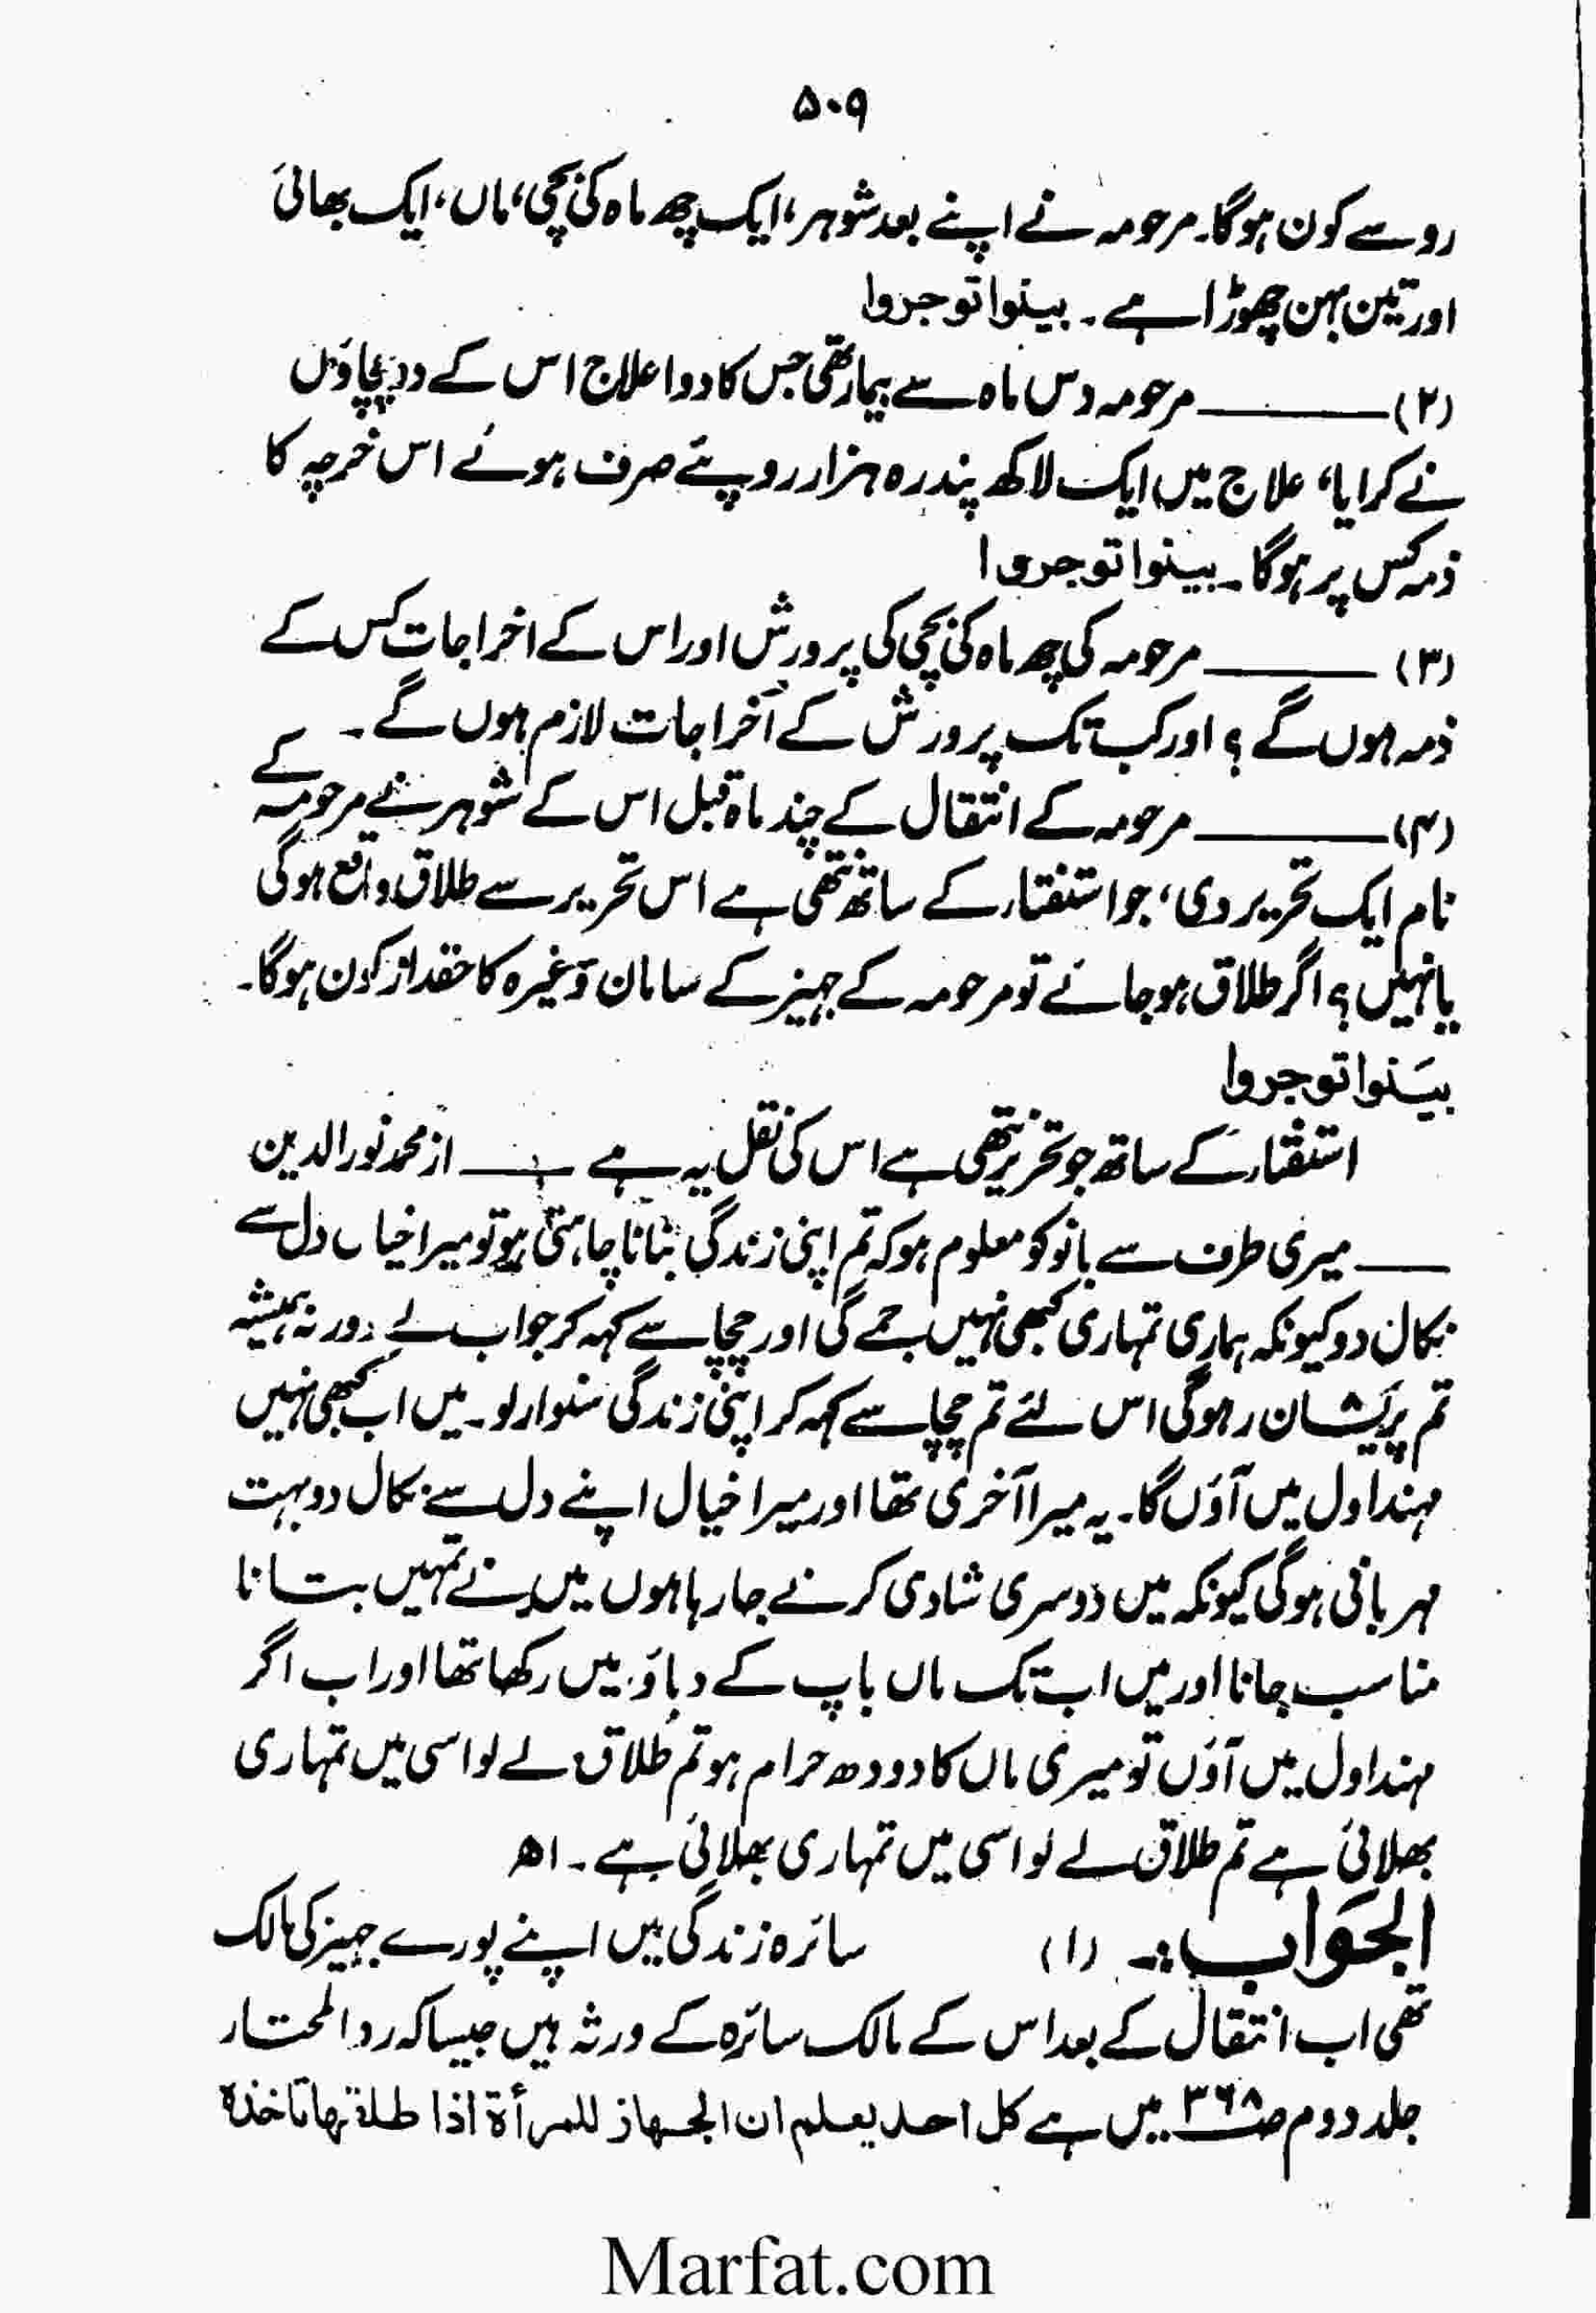 ۵۰۹
رو سے کون ہوگا۔ مرحومہ نے اپنے بعد شوہر، ایک چھ ماہ کی بچی، ماں، ایک بھائی
اور تین بہن چھوڑا ہے ۔ بینوا توجروا
(۲) ـــــــ مرحومہ دس ماہ سے بیمار تھی جس کا دوا علاج اس کے دو چچاؤں
نے کرایا، علاج میں ایک لاکھ پندرہ ہزار روپئے صرف ہوئے اس خرچہ کا
ذمہ کس پر ہوگا ۔ بینوا توجروا
(۳) ـــــــ مرحومہ کی چھ ماہ کی بچی کی پرورش اور اس کے اخراجات کس کے
ذمہ ہوں گے ؟ اور کب تک پرورش کے اخراجات لازم ہوں گے ۔
(۴) ـــــــ مرحومہ کے انتقال کے چند ماہ قبل اس کے شوہر نے مرحومہ کے
نام ایک تحریر دی، جو استفتار کے ساتھ نتھی ہے اس تحریر سے طلاق واقع ہوگی
یا نہیں ؟ اگر طلاق ہو جائے تو مرحومہ کے جہیز کے سامان وغیرہ کا حقدار کون ہوگا۔
بینوا توجروا
استفتار کے ساتھ جو تحریر نتھی ہے اس کی نقل یہ ہے ـــــ از محمد نور الدین
ـــــ میری طرف سے بانو کو معلوم ہو کہ تم اپنی زندگی بنانا چاہتی ہو تو میرا خیال دل سے
نکال دو کیونکہ ہماری تمہاری کبھی نہیں جمے گی اور چچا سے کہہ کر جواب لے دورنہ ہمیشہ
تم پریشان رہوگی اس لئے تم چچا سے کہہ کر اپنی زندگی سنوار لو ۔ میں اب کبھی نہیں
مہنداول میں آؤں گا۔ یہ میرا آخری تھا اور میرا خیال اپنے دل سے نکال دو بہت
مہربانی ہوگی کیونکہ میں دوسری شادی کرنے جارہا ہوں میں نے تمہیں بتانا
مناسب جانا اور میں اب تک ماں باپ کے دباؤ میں رکھا تھا اور اب اگر
مہنداول میں آؤں تو میری ماں کا دودھ حرام ہو تم طلاق لے لو اسی میں تمہاری
بھلائی ہے تم طلاق لے لو اسی میں تمہاری بھلائی ہے ۔ اھ
الجواب :۔ (۱) سائرہ زندگی میں اپنے پورے جہیز کی مالک
تھی اب انتقال کے بعد اس کے مالک سائرہ کے ورثہ ہیں جیسا کہ رد المحتار
جلد دوم صـ۳۶۸ میں ہے کل احد یعلم ان الجہاز للمرأۃ اذا طلقہا تاخذہ
Marfat.com